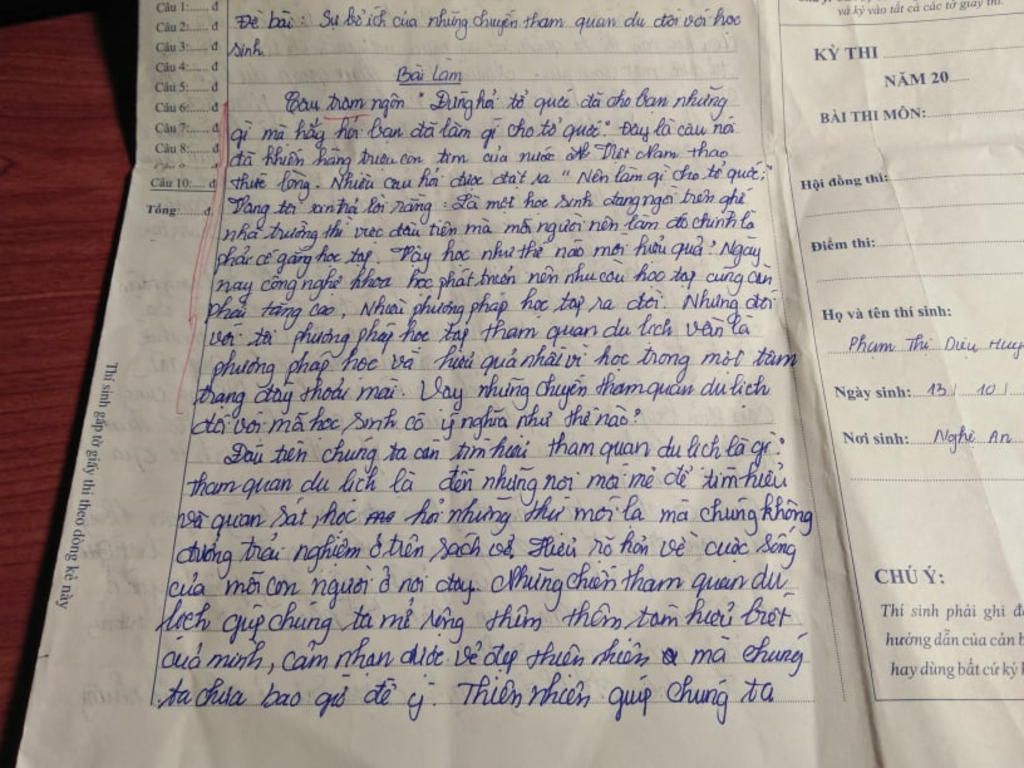 Câu 1:...... đ
Câu 2:...... đ
Câu 3:...... đ
Câu 4:...... đ
Câu 5:...... đ
Câu 6:...... đ
Câu 7:...... đ
Câu 8:...... đ
Câu 10:..... đ
Tổng:........đ
Thí sinh gấp tờ giấy thi theo dòng kẻ này
Đề bài: Sự bổ ích của những chuyến tham quan du đối với học
sinh
Bài làm
"Đừng hỏi tổ quốc đã cho bạn những
gì mà hãy hỏi bạn đã làm gì cho tổ quốc". Đây là câu nói
đã khiến hàng triệu con tim của nước Việt Nam thao
thức lòng. Nhiều câu hỏi được đặt ra "Nên làm gì cho tổ quốc?"
Vâng tôi xin trả lời rằng: Là một học sinh đang ngồi trên ghế
nhà trường thì việc đầu tiên mà mỗi người nên làm đó chính là
phải cố gắng học tập. Vậy học như thế nào mới hiệu quả? Ngày
nay công nghệ khoa học phát triển nên nhu cầu học tập cũng cần
phải tăng cao, Nhiều phương pháp học tập ra đời. Nhưng đối
với tôi phương pháp học tập tham quan du lịch vẫn là
phương pháp học và hiệu quả nhất vì học trong một tâm
trạng đầy thoải mái. Vậy những chuyến tham quan du lịch
đối với mã học sinh có ý nghĩa như thế nào?
Đầu tiên chúng ta cần tìm hiểu tham quan du lịch là gì?
tham quan du lịch là đến những nơi mới mẻ để tìm hiểu
và quan sát, học hỏi những thứ mới lạ mà chúng không
đường trải nghiệm ở trên sách vở. Hiểu rõ hơn về cuộc sống
của mỗi con người ở nơi đây. Những chiến tham quan du
lịch giúp chúng ta mở rộng thêm thêm, tầm hiểu biết
của mình, cảm nhận được vẻ đẹp thiên nhiên mà chúng
ta chưa bao giờ để ý. Thiên nhiên giúp chúng ta
và ký vào tất cả các tờ giấy thi.
KỲ THI
NĂM 20
BÀI THI MÔN:
Hội đồng thi:
Điểm thi:
Họ và tên thí sinh:
Phạm Thị Diệu
Ngày sinh: 13 / 10 /
Nơi sinh: Nghệ An
CHÚ Ý:
Thí sinh phải ghi
hướng dẫn của cán
hay dùng bất cứ ký